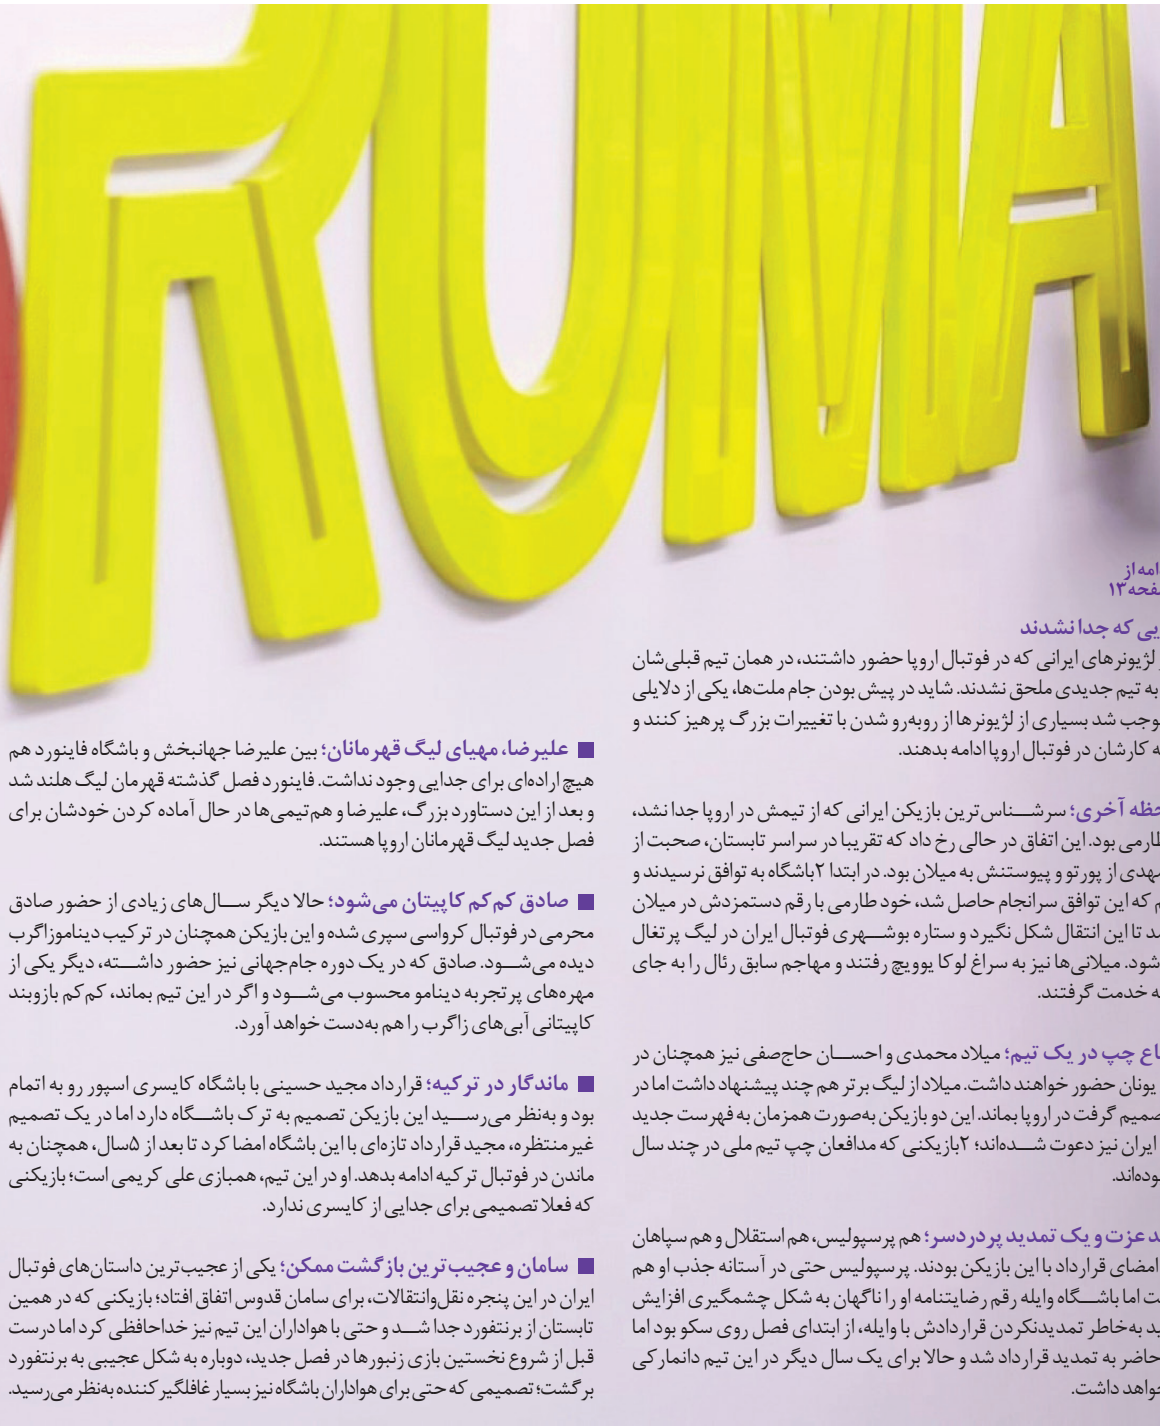 ROMA
امه از
فحه ۱۳
یی که جدا نشدند
لژیونرهای ایرانی که در فوتبال اروپا حضور داشتند، در همان تیم قبلی‌شان
به تیم جدیدی ملحق نشدند. شاید در پیش بودن جام ملت‌ها، یکی از دلایلی
وجب شد بسیاری از لژیونرها از روبه‌رو شدن با تغییرات بزرگ پرهیز کنند و
ه کارشان در فوتبال اروپا ادامه بدهند.
حظه آخری؛ سرشناس‌ترین بازیکن ایرانی که از تیمش در اروپا جدا نشد،
طارمی بود. این اتفاق در حالی رخ داد که تقریبا در سراسر تابستان، صحبت از
هدی از پورتو و پیوستنش به میلان بود. در ابتدا ۲باشگاه به توافق نرسیدند و
م که این توافق سرانجام حاصل شد، خود طارمی با رقم دستمزدش در میلان
د تا این انتقال شکل نگیرد و ستاره بوشهری فوتبال ایران در لیگ پرتغال
شود. میلانی‌ها نیز به سراغ لوکا یوویچ رفتند و مهاجم سابق رئال را به جای
ه خدمت گرفتند.
اع چپ در یک تیم؛ میلاد محمدی و احسان حاج‌صفی نیز همچنان در
یونان حضور خواهند داشت. میلاد از لیگ برتر هم چند پیشنهاد داشت اما در
صمیم گرفت در اروپا بماند. این دو بازیکن به‌صورت همزمان به فهرست جدید
ایران نیز دعوت شده‌اند؛ ۲بازیکنی که مدافعان چپ تیم ملی در چند سال
وده‌اند.
د عزت و یک تمدید پردردسر؛ هم پرسپولیس، هم استقلال و هم سپاهان
امضای قرارداد با این بازیکن بودند. پرسپولیس حتی در آستانه جذب او هم
ت اما باشگاه وایله رقم رضایتنامه او را ناگهان به شکل چشمگیری افزایش
ید به‌خاطر تمدیدنکردن قراردادش با وایله، از ابتدای فصل روی سکو بود اما
حاضر به تمدید قرارداد شد و حالا برای یک سال دیگر در این تیم دانمارکی
خواهد داشت.
■ علیرضا، مهیای لیگ قهرمانان؛ بین علیرضا جهانبخش و باشگاه فاینورد هم
هیچ اراده‌ای برای جدایی وجود نداشت. فاینورد فصل گذشته قهرمان لیگ هلند شد
و بعد از این دستاورد بزرگ، علیرضا و هم‌تیمی‌ها در حال آماده کردن خودشان برای
فصل جدید لیگ قهرمانان اروپا هستند.
■ صادق کم‌کم کاپیتان می‌شود؛ حالا دیگر سال‌های زیادی از حضور صادق
محرمی در فوتبال کرواسی سپری شده و این بازیکن همچنان در ترکیب دیناموزاگرب
دیده می‌شود. صادق که در یک دوره جام‌جهانی نیز حضور داشته، دیگر یکی از
مهره‌های پرتجربه دینامو محسوب می‌شود و اگر در این تیم بماند، کم‌کم بازوبند
کاپیتانی آبی‌های زاگرب را هم به‌دست خواهد آورد.
■ ماندگار در ترکیه؛ قرارداد مجید حسینی با باشگاه کایسری اسپور رو به اتمام
بود و به‌نظر می‌رسید این بازیکن تصمیم به ترک باشگاه دارد اما در یک تصمیم
غیرمنتظره، مجید قرارداد تازه‌ای با این باشگاه امضا کرد تا بعد از ۵سال، همچنان به
ماندن در فوتبال ترکیه ادامه بدهد. او در این تیم، همبازی علی کریمی است؛ بازیکنی
که فعلا تصمیمی برای جدایی از کایسری ندارد.
■ سامان و عجیب‌ترین بازگشت ممکن؛ یکی از عجیب‌ترین داستان‌های فوتبال
ایران در این پنجره نقل‌وانتقالات، برای سامان قدوس اتفاق افتاد؛ بازیکنی که در همین
تابستان از برنتفورد جدا شد و حتی با هواداران این تیم نیز خداحافظی کرد اما درست
قبل از شروع نخستین بازی زنبورها در فصل جدید، دوباره به شکل عجیبی به برنتفورد
برگشت؛ تصمیمی که حتی برای هواداران باشگاه نیز بسیار غافلگیرکننده به‌نظر می‌رسید.